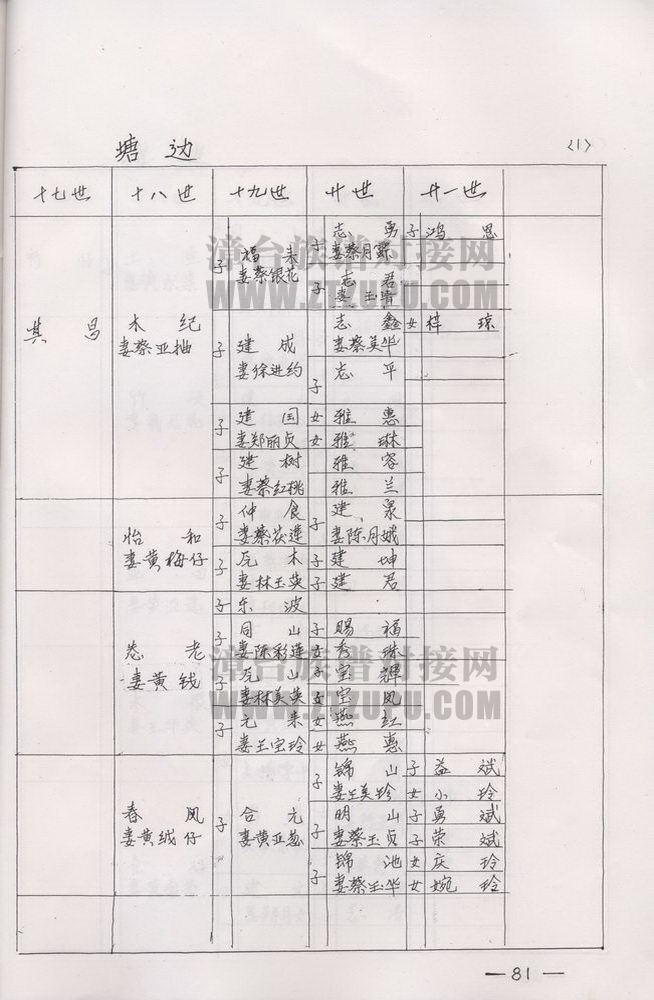 塘边
〈1〉
十七世 十八世 十九世 廿世 廿一世
其昌
木纪
妻蔡亚抽
子 福来
妻蔡银花
子 志勇
妻蔡月
子 鸿恩
子 志君
妻玉
子 建成
妻徐进约
志鑫
妻蔡英华
女 梓琼
子 志平
子 建国
妻郑丽贞
女 雅惠
女 雅琳
子 建树
妻蔡红桃
雅容
雅兰
怡和
妻黄梅仔
子 仲食
妻蔡莲
子 建泉
妻陈月娥
子 瓦木
妻林玉英
子 建坤
子 建君
老
妻黄钱
子 乐波
子 同山
妻陈彩莲
子 赐福
女 秀珠
子 瓦山
妻林美英
子 宝辉
女 宝凤
子 元来
妻王宝玲
女 燕红
女 燕惠
春凤
妻黄绒仔
子 合元
妻黄亚葱
子 锦山
妻王美珍
子 益斌
女 小玲
子 明山
妻蔡玉贞
子 勇斌
子 荣斌
子 锦池
妻蔡玉华
女 庆玲
女 婉玲
漳台族谱对接网
WWW.ZTZUPU.COM
漳台族谱对接网
WWW.ZTZUPU.COM
—81—